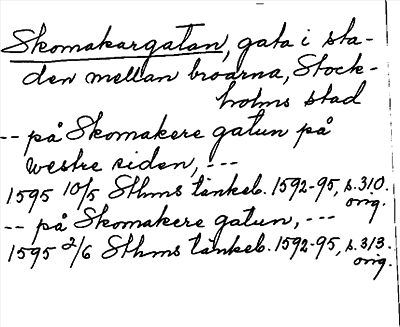 Skomakargatan, gata i sta-
den mellan broarna, Stock-
holms stad
-- på Skomakere gatun på
westre siden, ---
1595 10/5 Sthms tänkeb. 1592-95, s. 310.
orig.
-- på Skomakere gatun, ---
1595 2/6 Sthms tänkeb. 1592-95, s. 313.
orig.